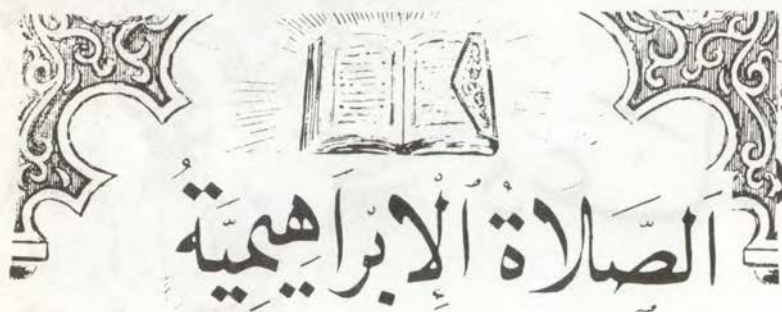 اَلصَّلَاةُ اُلْإِبْرَاهِيمِيَّةُ